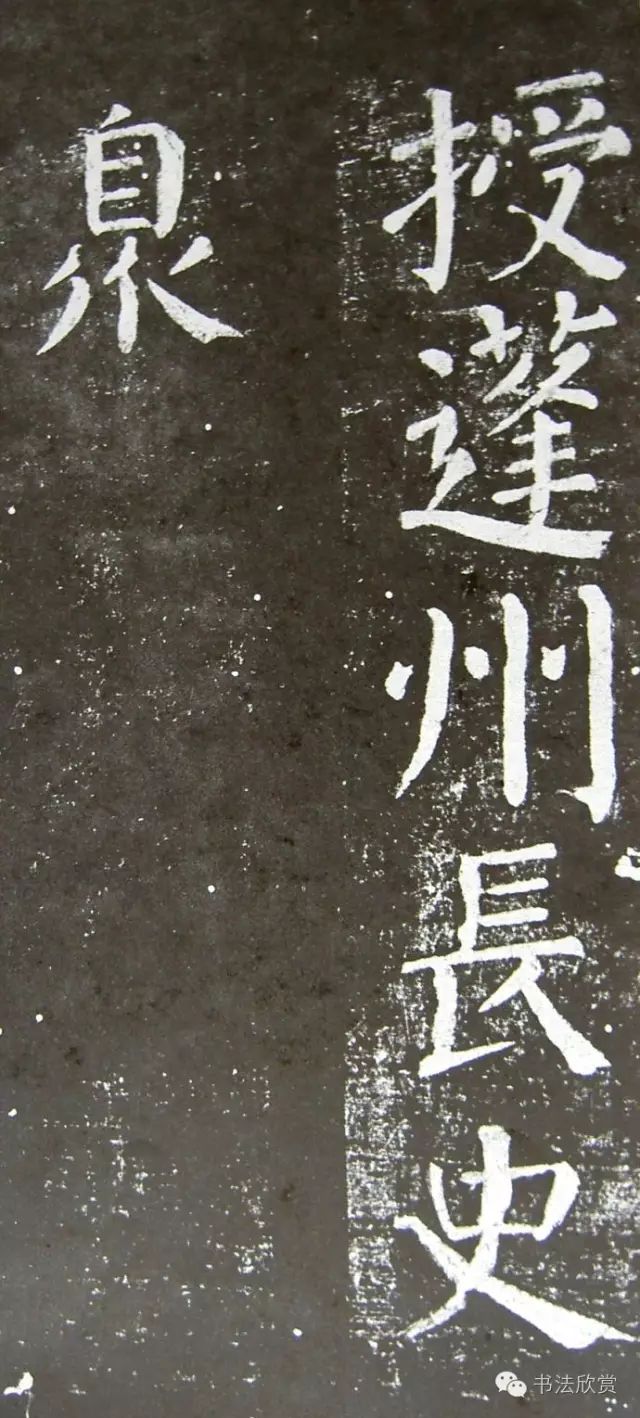 授蓬州長史
臮
书法欣赏